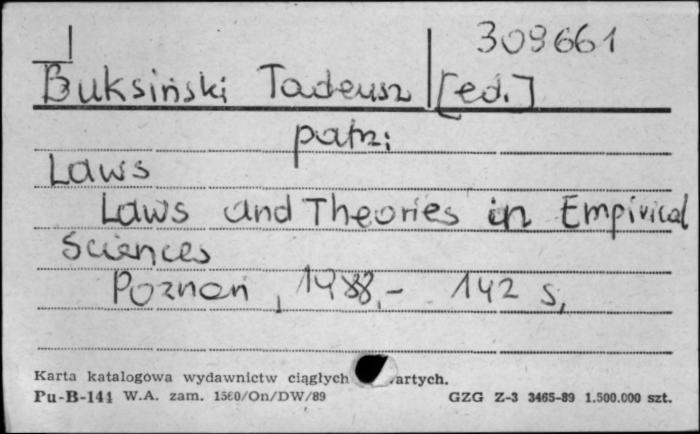 309661
Buksiński Tadeusz [ed.]
patrz:
Laws
Laws and Theories in Empirical
Sciences
Poznań, 1988.- 142 s,
Karta katalogowa wydawnictw ciągłych artych.
Pu-B-141 W.A. zam. 1560/On/DW/89 GZG Z-3 3465-89 1.500.000 szt.